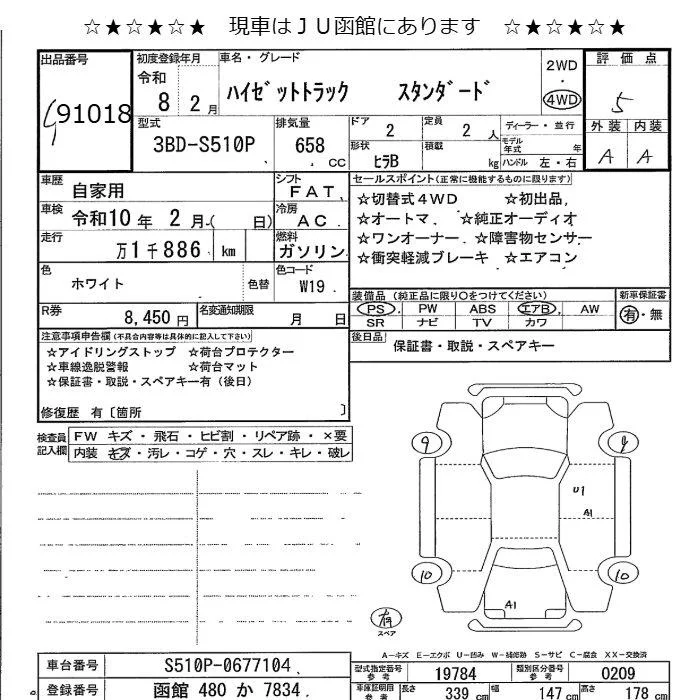 ☆★☆★☆★ 現車はＪＵ函館にあります ☆★☆★☆★
出品番号
91018
初度登録年月
令和
8 2 月
車名・グレード
ハイゼットトラック スタンダード
2WD
・
4WD
評価点
5
外装 内装
A A
型式
3BD-S510P
排気量
658 CC
ドア 2
定員 2 人
ディーラー・並行
形状 ヒラB
積載 kg
モデル年式 年
ハンドル 左・右
車歴 自家用
シフト FAT
車検 令和10年 2月 ( 日)
冷房 AC
走行 万1千886 km
燃料 ガソリン
色 ホワイト 色替
色コード W19
R券 8,450円
名変通知期限 月 日
セールスポイント(正常に機能するものに限ります)
☆切替式４WD ☆初出品
☆オートマ ☆純正オーディオ
☆ワンオーナー ☆障害物センサー
☆衝突軽減ブレーキ ☆エアコン
装備品（純正品に限り○をつけてください）
新車保証書
PS PW ABS エアB AW
SR ナビ TV カワ
有・無
後日品
保証書・取説・スペアキー
注意事項申告欄(不具合内容等は具体的に記入して下さい)
☆アイドリングストップ ☆荷台プロテクター
☆車線逸脱警報 ☆荷台マット
☆保証書・取説・スペアキー有（後日）
修復歴 有〔箇所 〕
検査員記入欄
FW キズ・飛石・ヒビ割・リペア跡・×要
内装 キズ・汚レ・コゲ・穴・スレ・キレ・破レ
9 9
U1
A1
10 10
A1
有
スペア
A-キズ E-エクボ U-凹み W-補修跡 S-サビ C-腐食 XX-交換済
車台番号 S510P-0677104
型式指定番号 参考 19784
類別区分番号 参考 0209
登録番号 函館 480 か 7834
車庫証明用 参考
長さ 339 cm
幅 147 cm
高さ 178 cm